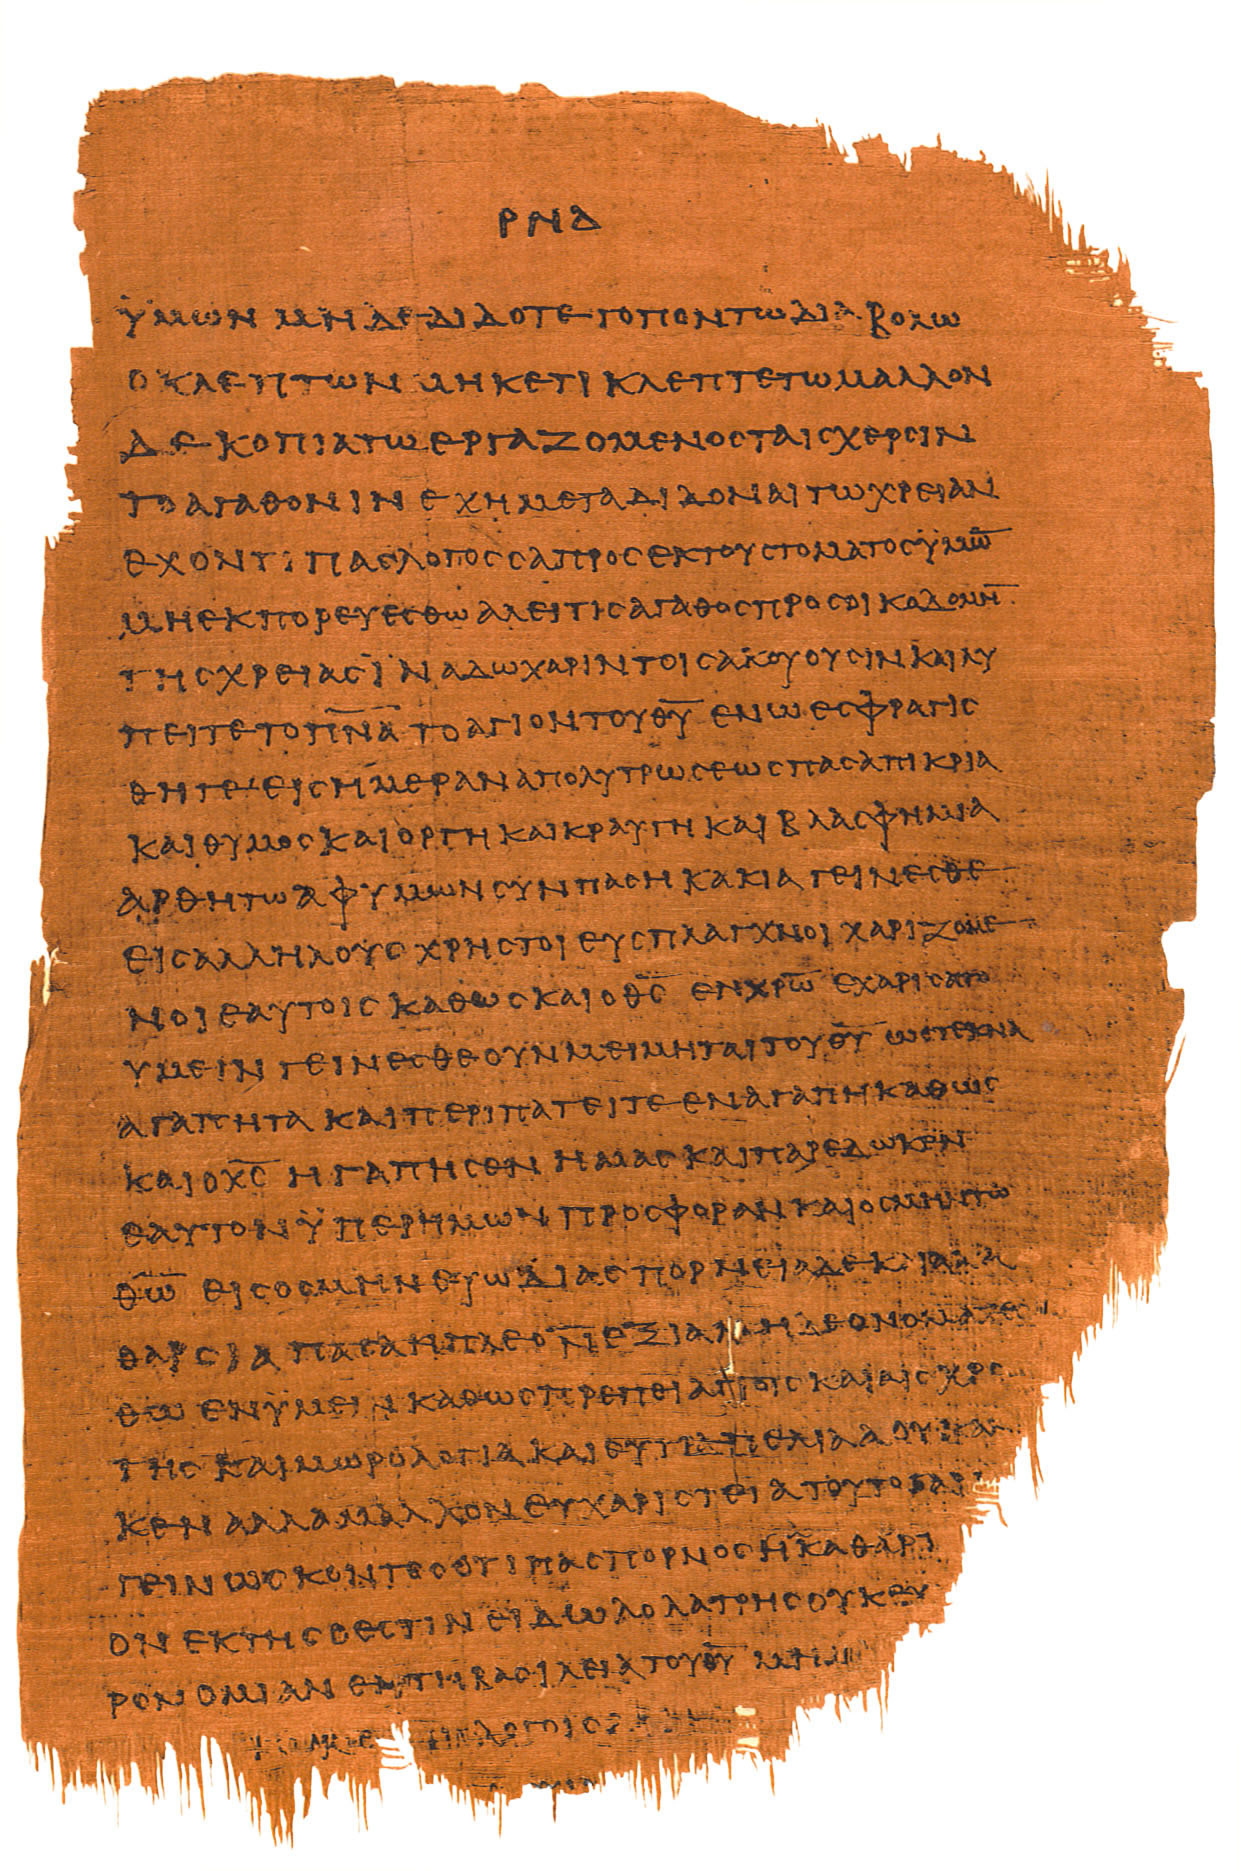 ΡΝΔ
ϋμων μηδε διδοτε τοπον τω διαβολω
ο κλεπτων μηκετι κλεπτετω μαλλον
δε κοπιατω εργαζομενος ταις χερσιν
το αγαθον ινεχη μεταδιδοναι τω χρειαν
εχοντι πας λογος σαπρος εκ του στοματος ϋμω̅
μη εκπορευεσθω αλ ει τις αγαθος προς οικοδομη̅
της χρειας ϊνα δω χαριν τοις ακουουσιν και λυ
πειτε το π̅ν̅α̅ το αγιον του θ̅υ̅ εν ω εσφραγισ
θητε εις ημεραν απολυτρωσεως πασα πικρια
και θυμος και οργη και κραυγη και βλασφημια
αρθητω αφ υμων συν παση κακια γεινεσθε
εις αλληλους χρηστοι ευσπλαγχνοι χαριζομε
νοι εαυτοις καθως και ο θ̅ς̅ εν χ̅ρ̅ω̅ εχαρισατο
υμειν γεινεσθε ουν μειμηται του θ̅υ̅ ως τεκνα
αγαπητα και περιπατειτε εν αγαπη καθως
και ο χ̅ς̅ ηγαπησεν ημας και παρεδωκεν
εαυτον ϋπερ ημων προσφοραν και
θ̅ω̅ εις οσμην ευωδιας πορνεια δε και
θαρσια πασα η πλεονεξια μηδε ονομαζεσ
θω εν ϋμειν καθως πρεπει αγιοις και αισχρο
της και μωρολογια και ευτραπελια α ουκ αν
κεν αλλα μαλλον ευχαριστεια τουτο γαρ
γεινωσκοντες οτι πας πορνος η ακαθαρτ
ον εκτης ο εστιν ειδωλολατρης ουκ
ρονομιαν εν τη βασιλεια του θ̅υ̅